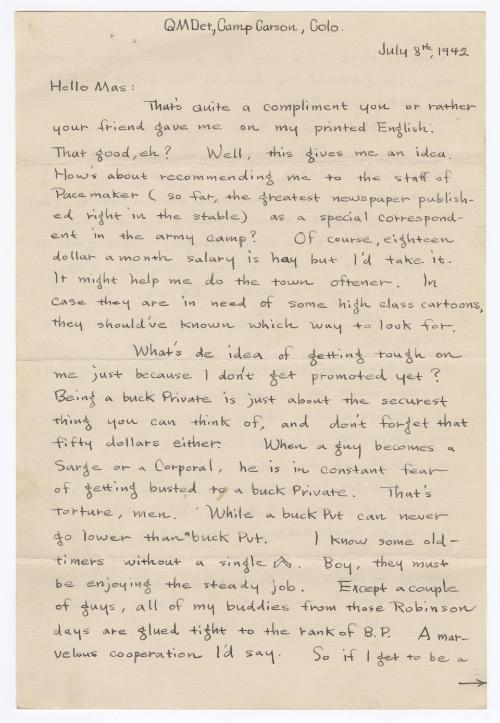 QMDet, Camp Carson, Colo.
July 8th, 1942
Hello Mas:
That's quite a compliment you or rather
your friend gave me on my printed English.
That good, eh? Well, this gives me an idea.
How's about recommending me to the staff of
Pacemaker ( so far, the greatest newspaper publish-
ed right in the stable) as a special correspond-
ent in the army camp? Of course, eighteen
dollar a month salary is hay but I'd take it.
It might help me do the town oftener. In
case they are in need of some high class cartoons,
they should've known which way to look for.
What's de idea of getting tough on
me just because I don't get promoted yet?
Being a buck Private is just about the securest
thing you can think of, and don't forget that
fifty dollars either. When a guy becomes a
Sarge or a Corporal, he is in constant fear
of getting busted to a buck Private. That's
torture, men. While a buck Pvt can never
go lower than a buck Pvt. I know some old-
timers without a single . Boy, they must
be enjoying the steady job. Except a couple
of guys, all of my buddies from those Robinson
days are glued tight to the rank of B.P. A mar-
velous cooperation I'd say. So if I get to be a
→